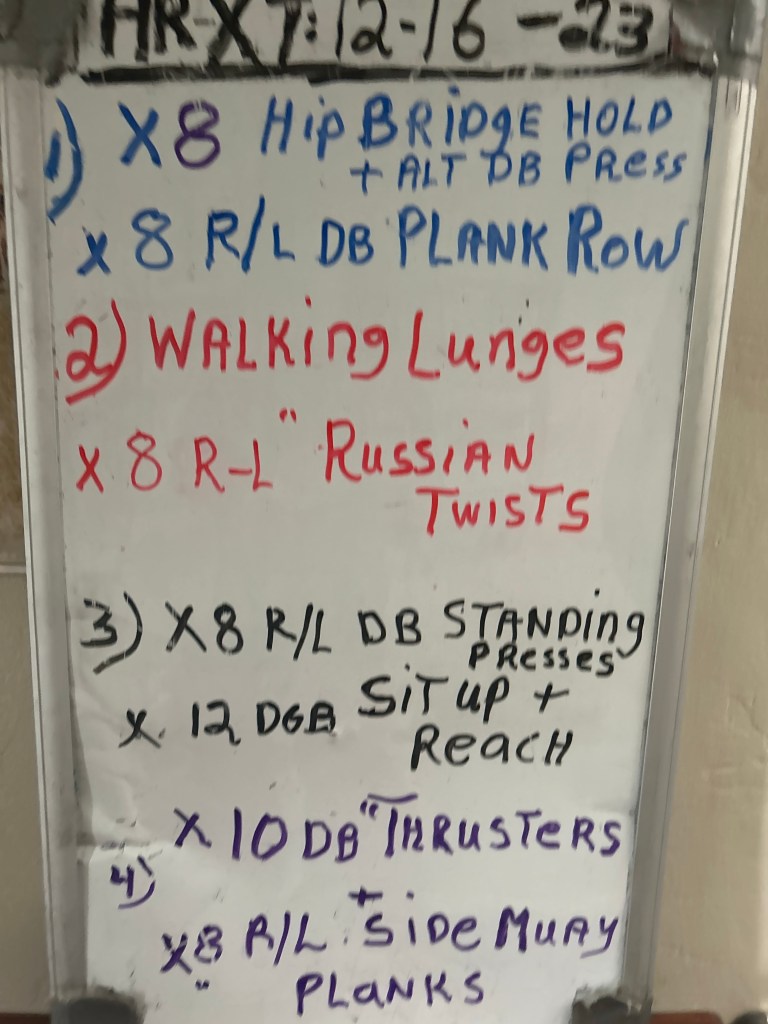 HR-XT: 12-16-23
1) X8 Hip BRIDgE HOLD
+ ALT DB PRESS
x 8 R/L DB PLANK ROW
2) WALKing Lunges
x 8 R-L " RUSSiAN
TWISTS
3) X8 R/L DB STANDing
PRESSES
x. 12 DGB SiT UP +
REACH
x 10 DB "THRUSTERS
4)
+
x8 R/L SiDE MUAY
" PLANKS